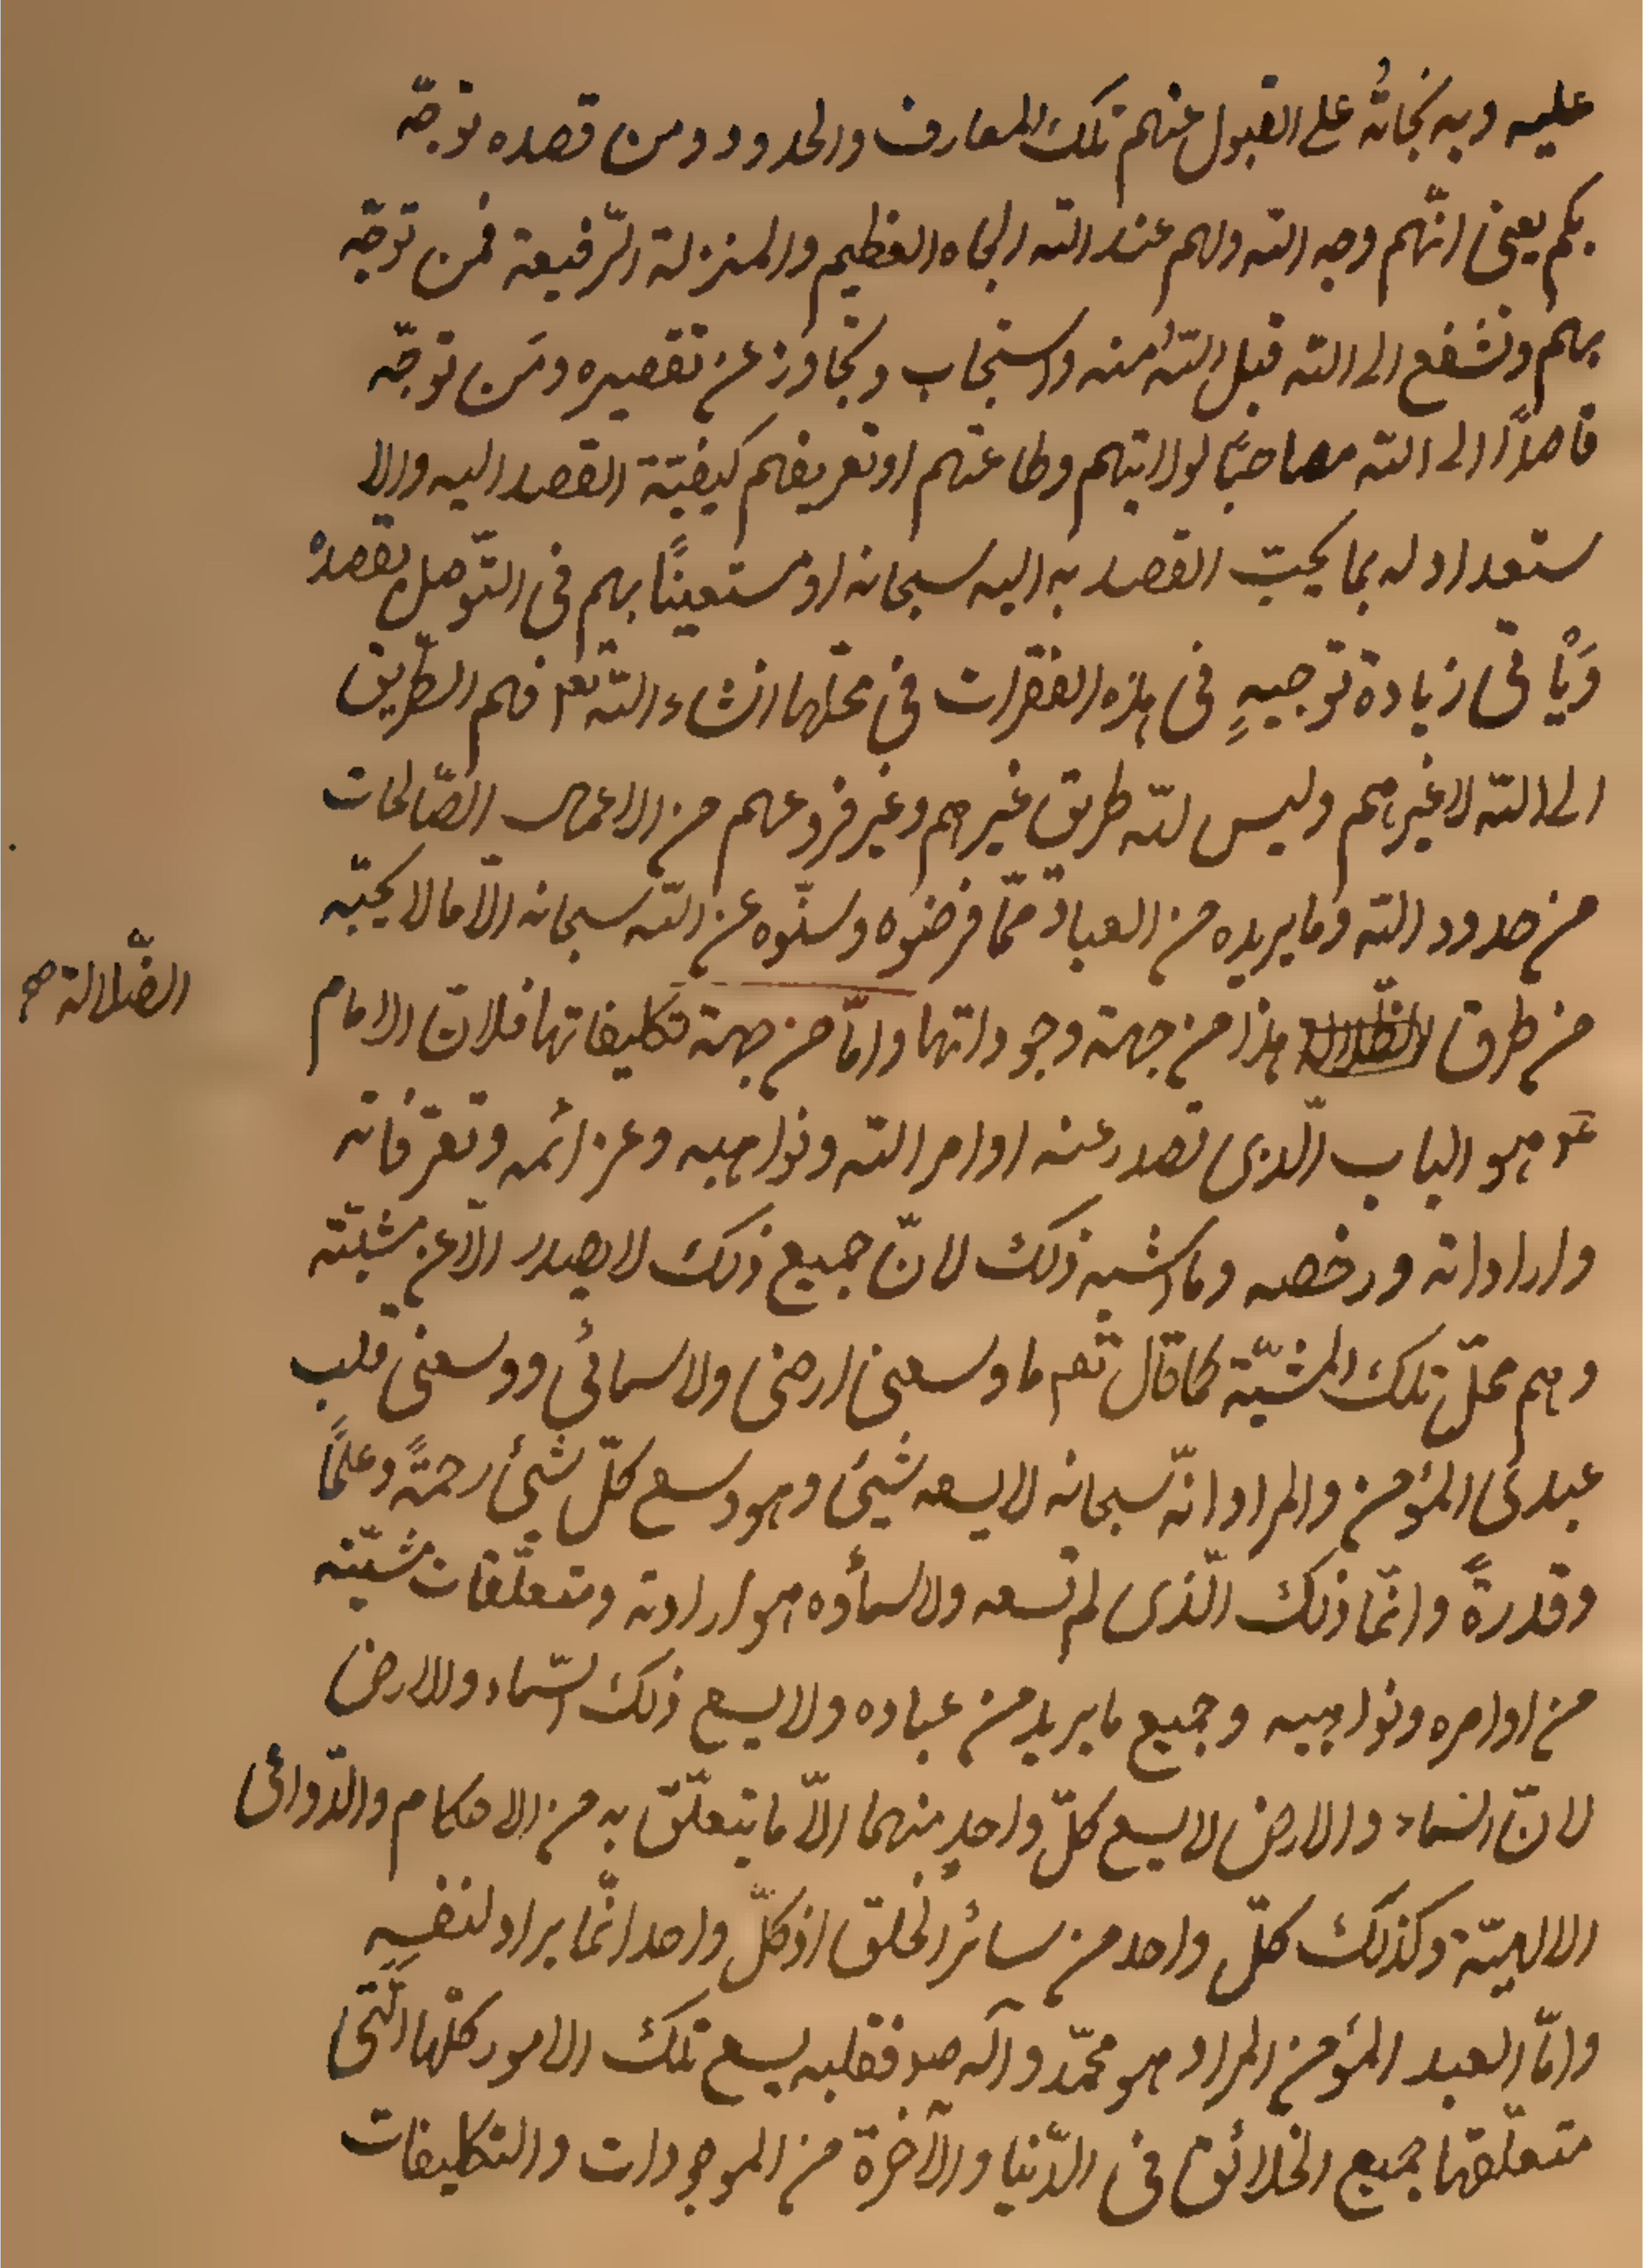 عليه وبه نجاته على القبول عنهم تلك المعارف والحدود ومن قصده توجّه
بكم يعنى انّهم وجه الله ولهم عند الله الجاه العظيم والمنزلة الرّفيعة فمن توجّه
بهم وتشفع الى الله قبل اللهُ منه واستجاب وتجاوز عن تقصيره ومَن توجّه
قاصدًا الى الله مصاحبًا لولايتهم وطاعتهم او تعريفهم كيفيّة القصد اليه والا
ستعداد له بما يحبّ القصد به اليه سبحانه او مستعينًا بهم فى التّوصل بقصده
وَيْأتى زيادة توجيهٍ فى هذه الفقرات فى محلها انشاء الله تعا فهم الطّريق
الى الله لا غيرهم وليس لله طريق غيرهم وغير فروعهم من الاعمال الصّالحات
من حدود الله وما يريده من العبادة ممّا فرضوه وسنّوه عن الله سبحانه الّا ما لا يحبّه
من طرق هذا من جهة وجوداتها وامّا من جهة تكليفاتها فلانّ الامام
عو هو الباب الّذى تصدر عنه اوامر الله ونواهيه وعزائمه وتعرّفاته
واراداته ورخصه وما اشبه ذلك لانّ جميع ذلك لا يصدر الّا عن مشيّته
وهم محلّ تلك المشيّة كما قال تعم ما وسعنى ارضى ولا سمائى ووسعنى قلب
عبدى المؤمن والمراد انّه سبحانه لا يسعه شيئ وهو وسع كلّ شيئ رحمةً وعلمًا
وقدرةً وانّما ذلك الّذى لم تسعه ولا سماؤه هو ارادته ومتعلّقات مشيّته
من اوامره ونواهيه وجميع ما يريد من عباده ولا يسع ذلك السّماء والارض
لانّ السّماء والارض لا يسع كلّ واحدٍ منهما الّا ما يتعلّق به من الاحكام والدّواعى
الالهيّة وكذلك كلّ واحد من سائر الخلق اذ كلّ واحد انّما يراد لنفسِهِ
وامّا العبد المؤمن المراد هو محمّد وآله صو فقلبه يسع تلك الامور كلّها الّتى
متعلّقها جميع الخلائق فى الدّنيا والآخرة من الموجودات والتكليفات
الضّلالة صح